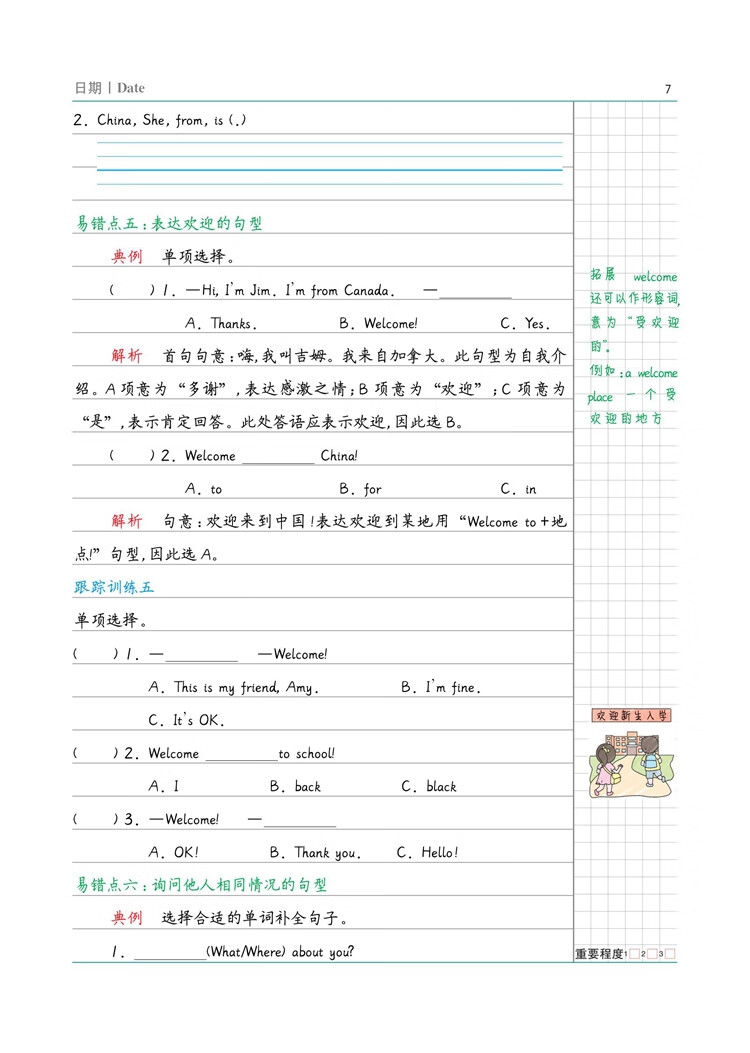 日期 | Date
7
2. China, She, from, is (.)
易错点五:表达欢迎的句型
典例 单项选择。
( ) 1. —Hi, I'm Jim. I'm from Canada. —__________
A. Thanks. B. Welcome! C. Yes.
解析 首句句意:嗨,我叫吉姆。我来自加拿大。此句型为自我介
绍。A 项意为“多谢”,表达感激之情;B 项意为“欢迎”;C 项意为
“是”,表示肯定回答。此处答语应表示欢迎,因此选 B。
( ) 2. Welcome __________ China!
A. to B. for C. in
解析 句意:欢迎来到中国!表达欢迎到某地用“Welcome to +地
点!”句型,因此选 A。
跟踪训练五
单项选择。
( ) 1. —__________ —Welcome!
A. This is my friend, Amy. B. I'm fine.
C. It's OK.
( ) 2. Welcome __________to school!
A. I B. back C. black
( ) 3. —Welcome! —__________
A. OK! B. Thank you. C. Hello!
易错点六:询问他人相同情况的句型
典例 选择合适的单词补全句子。
1. __________(What/Where) about you?
拓展 welcome
还可以作形容词,
意为“受欢迎
的”。
例如:a welcome
place 一个受
欢迎的地方
欢迎新生入学
重要程度 1 □ 2 □ 3 □